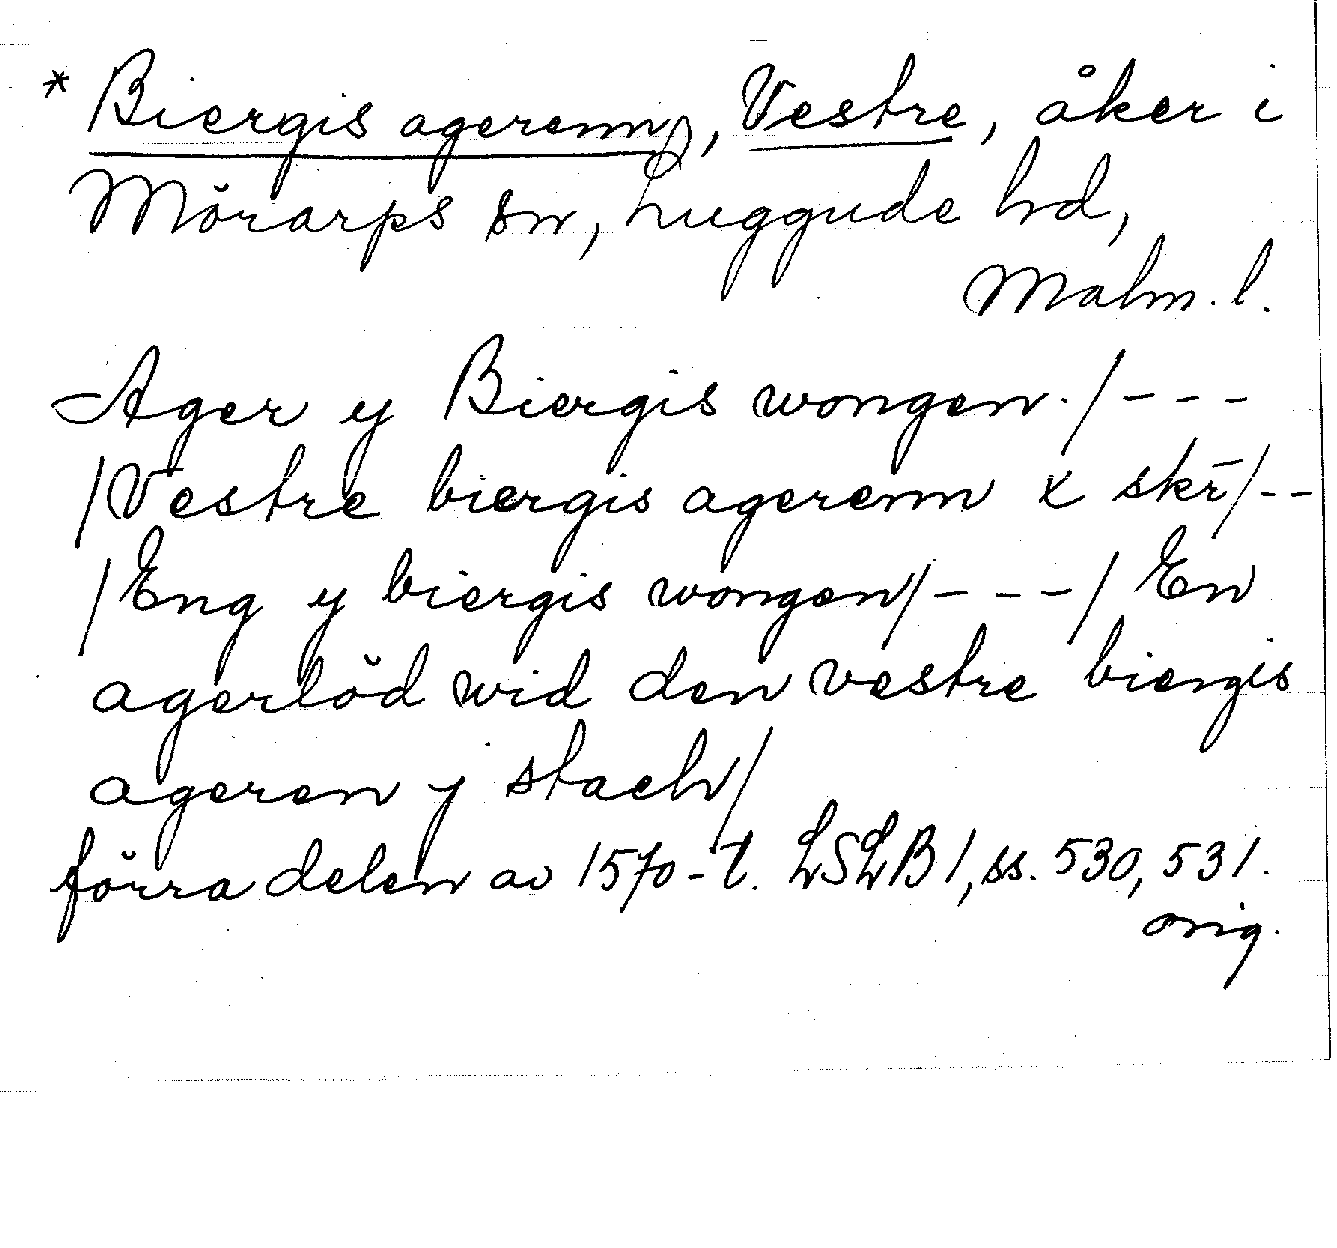 * Biergis agerenn, Vestre, åker i
Mörarps sn, Luggude hd,
Malm. l.
Ager y Biergis wongen./---
/Vestre biergis agerenn x skr̄/--
/Eng y biergis wongen/---/ En
agerlöd wid den vestre biergis
ageren y stach/
förra delen av 1570-t. LSLB 1, ss. 530, 531.
orig.